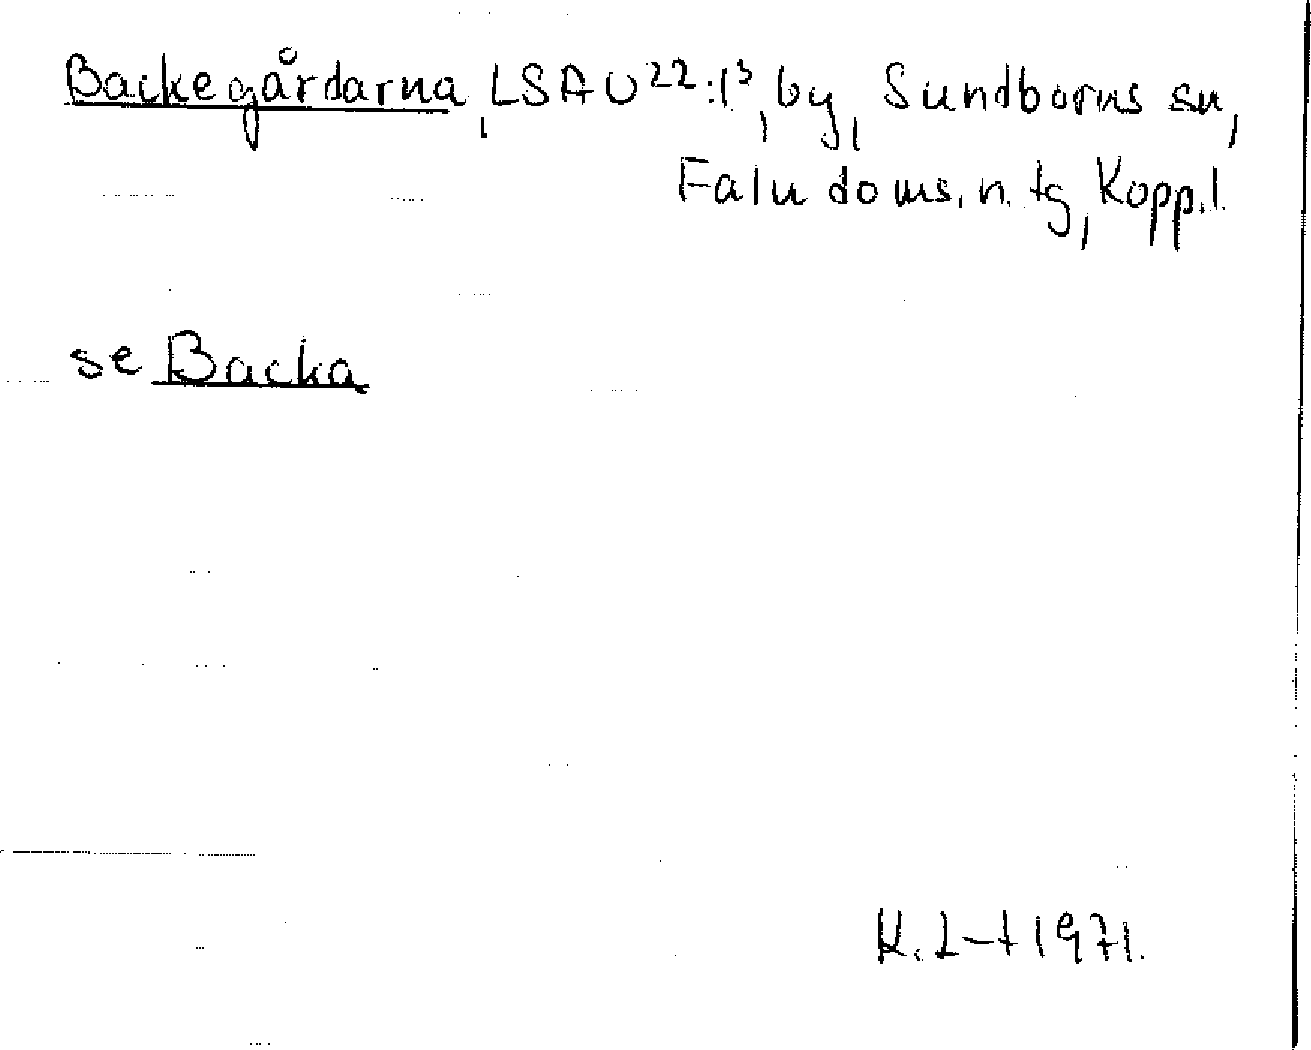 Backegårdarna, LSA U22:1³, by, Sundborns sn,
Falu doms. n. tg, Kopp. l.
se Backa
K. L-t 1971.